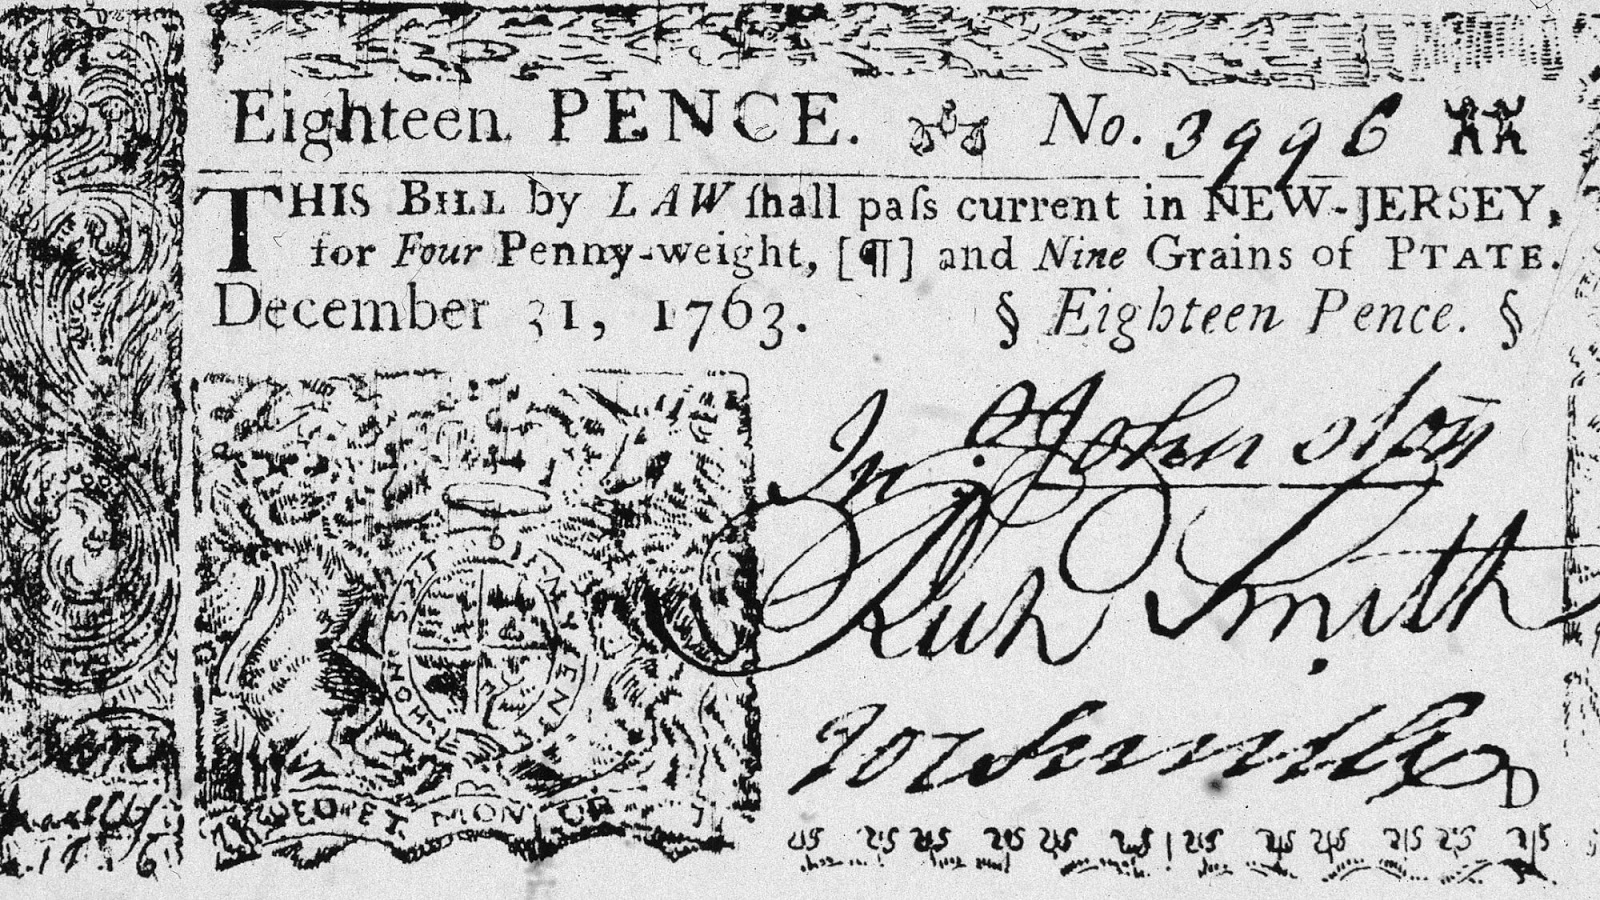 Eighteen PENCE. No. 3996
THIS BILL by LAW ſhall paſs current in NEW-JERSEY,
for Four Penny-weight, [¶] and Nine Grains of PTATE.
December 31, 1763. § Eighteen Pence. §
Jn. Johnston
Rich Smith
HONI SOIT
DIEU ET MON